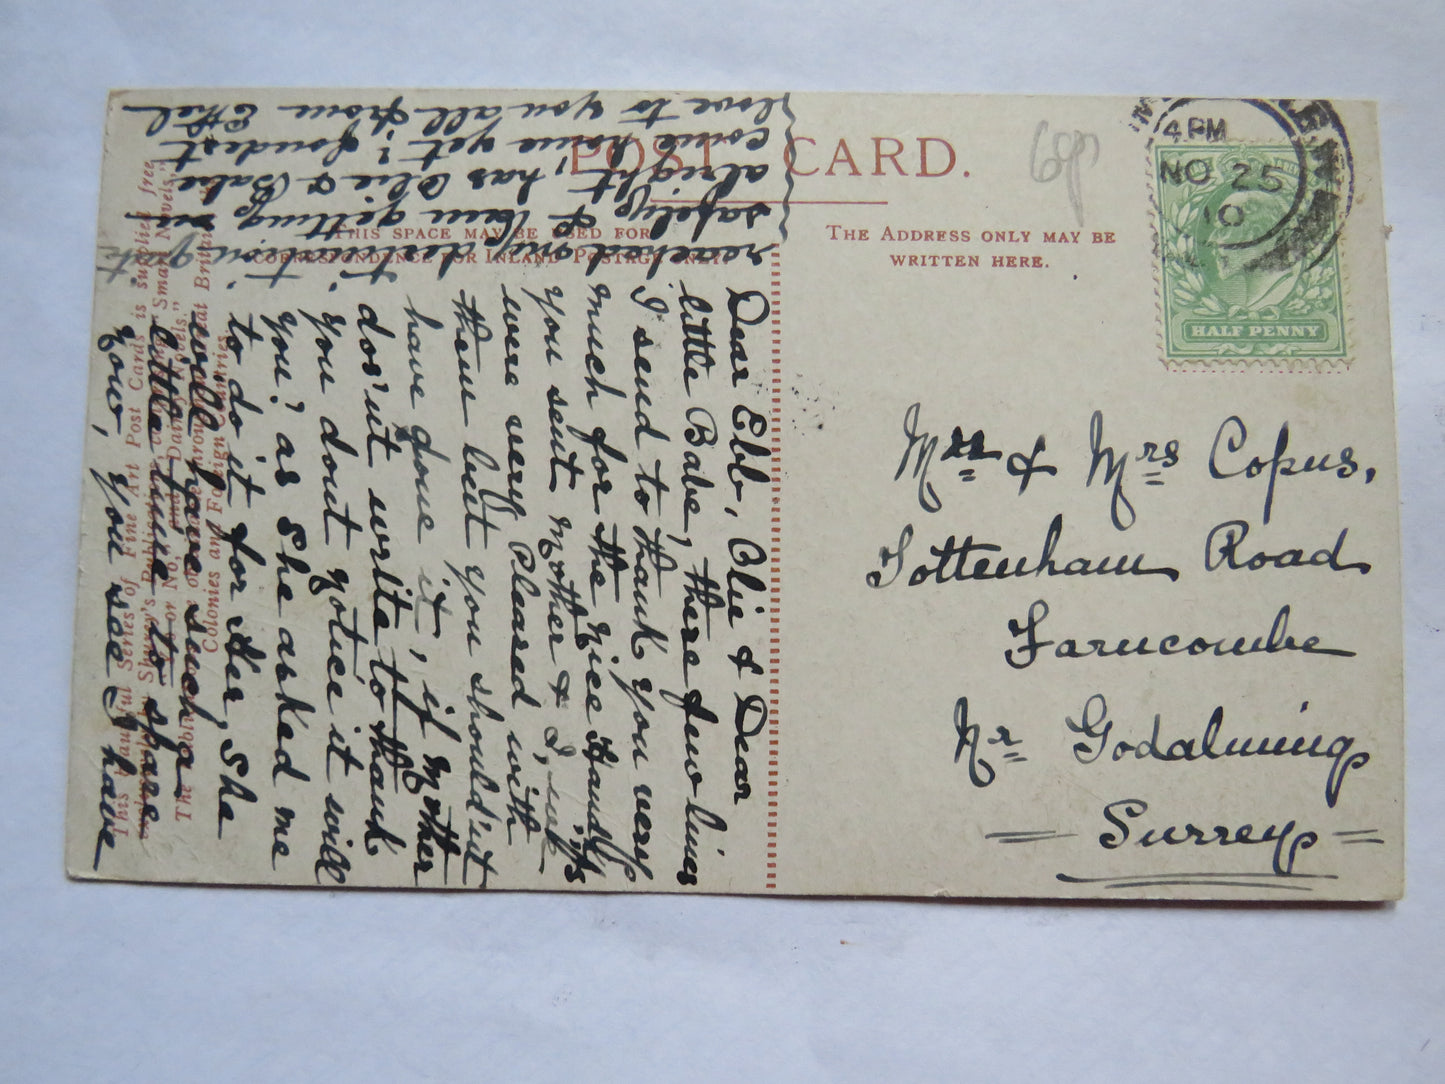 POST CARD.
THIS SPACE MAY BE USED FOR
CORRESPONDENCE FOR INLAND POSTAGE ONLY.
THE ADDRESS ONLY MAY BE
WRITTEN HERE.
4 PM
NO 25
10
HALF PENNY
6p
Mrs & Mrs Copus,
Tottenham Road
Farncombe
Nr Godalming
Surrey
Dear Ebb, Olie & Dear
little Babe, there few lines
I send to thank you very
much for the nice Handk'fs
you sent Mother & I, we
were very Pleased with
them but you should'nt
have done it, if Mother
dos'nt write to thank
you dont notice it will
you? as She asked me
to do it for Her, She
will have such a
little time to spare
now, you see I have
reached my destination quite
safely & am getting on
alright, has Olie & Babe
come home yet? fondest
love to you all from Ethel
This Beautiful Series of Fine Art Post Cards is supplied free
Shurey's Publications, comprising "Smart Novels,"
Colonies and Foreign Countries.